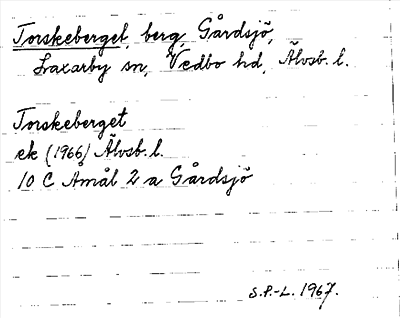 Torskeberget, berg, Gårdsjö,
Laxarby sn, Vedbo hd, Älvsb. l.
Torskeberget
ek (1966) Älvsb. l.
10 C Åmål 2 a Gårdsjö
S.P.-L. 1967.